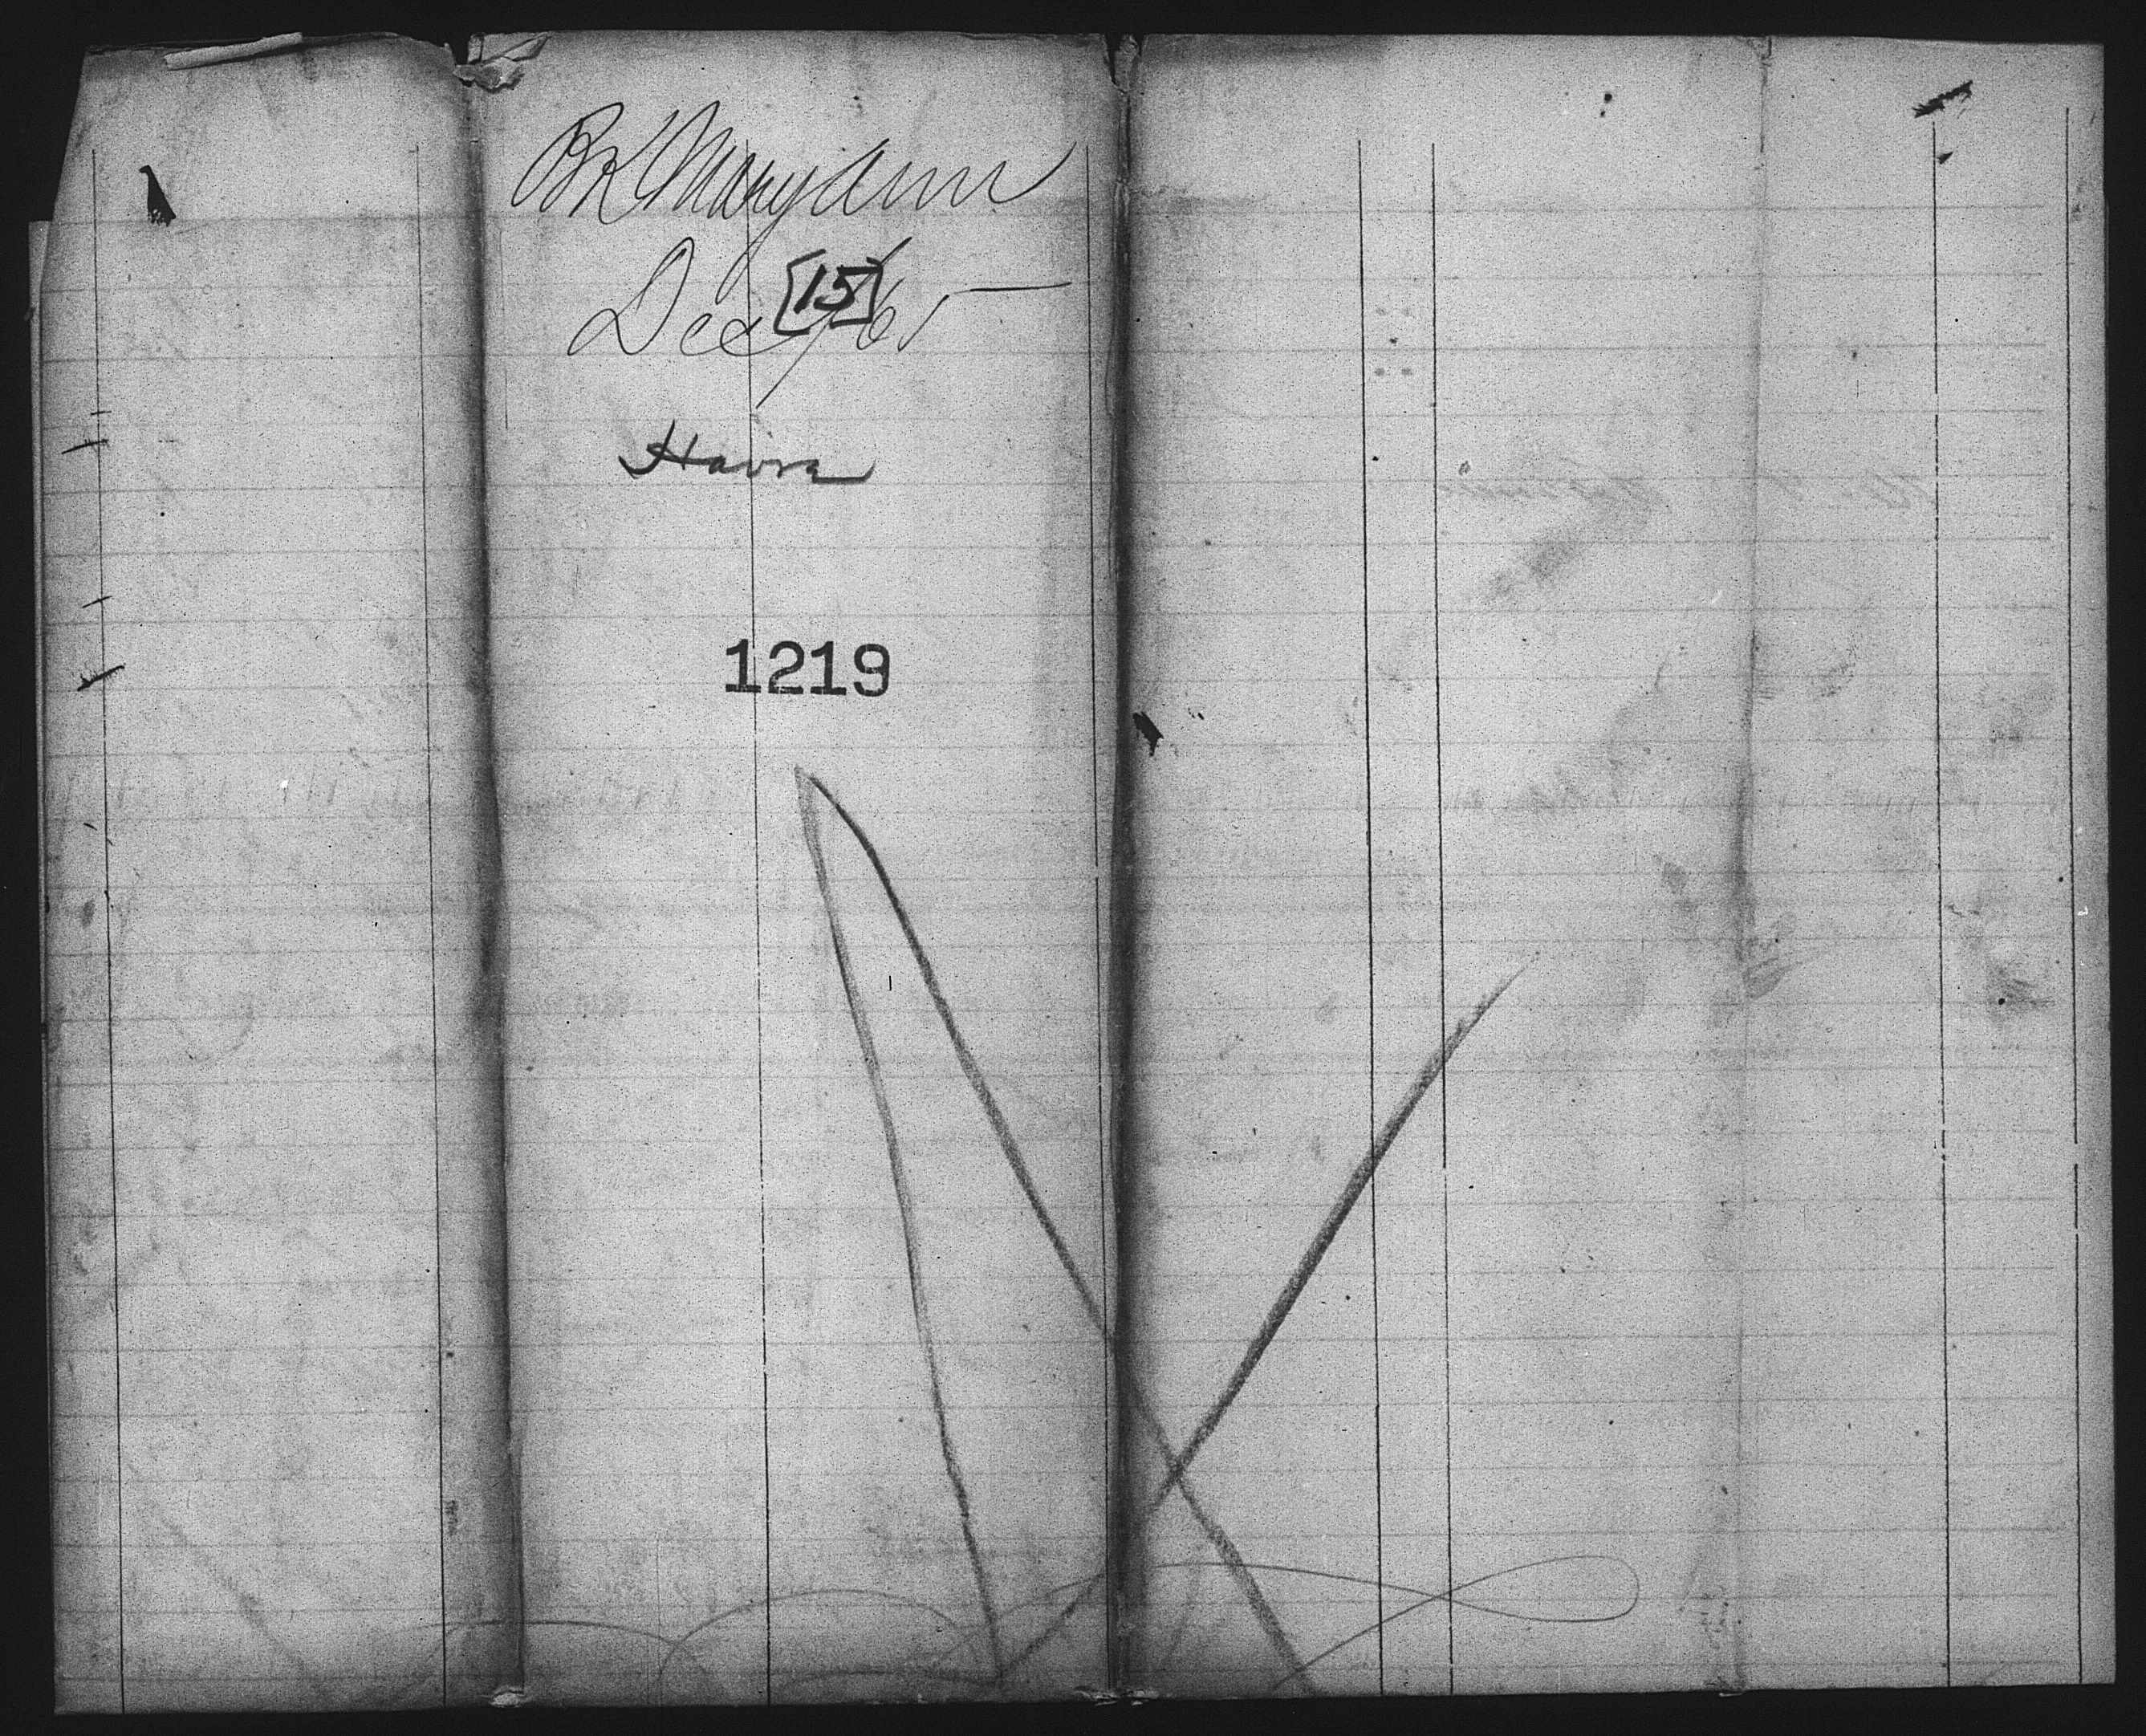 Bk Mary Ann
Dec [15] /61
Havre
1219